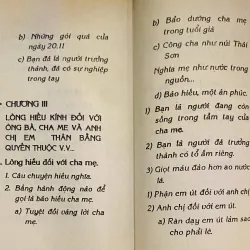 b) Những gói quà của
ngày 20.11
c) Bạn đã là người trưởng
thành, đã có sự nghiệp
trong tay
- CHƯƠNG III
LÒNG HIẾU KÍNH ĐỐI VỚI
ÔNG BÀ, CHA MẸ VÀ ANH
CHỊ EM THÂN BẰNG
QUYẾN THUỘC V.V...
. Lòng hiếu đối với cha mẹ.
1. Câu chuyện hiếu nghĩa.
2. Bằng hành động nào để
gọi là báo hiếu cha mẹ.
a) Tuyệt đối vâng lời cha
mẹ.
b) Bảo dưỡng cha mẹ
trong tuổi già
c) Công cha như núi Thái
Sơn
Nghĩa mẹ như nước
trong nguồn...
d) Báo hiếu, một ân phúc.
1) Bạn là người đang còn
sống trong tầm tay của
cha mẹ.
2) Bạn là người đã trưởng
thành có tổ ấm riêng.
3) Giọt máu đào hơn ao nước
lã.
1) Phận em út đối với anh chị
2) Anh chị đối với em út.
a) Răn dạy em út làm sao
cho phải lẽ.